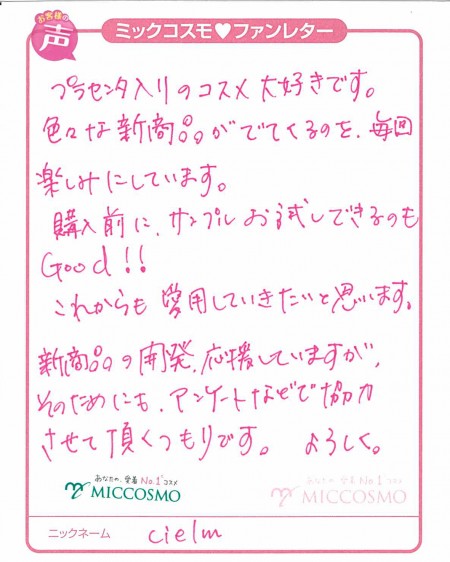 お客様の
声
ミックコスモ♥ファンレター
プラセンタ入りのコスメ大好きです。
色々な新商品がでてくるのを、毎回
楽しみにしています。
購入前に、サンプルお試しできるのも
Good!!
これからも愛用していきたいと思います。
新商品の開発、応援していますが、
そのためにも、アンケートなどで協力
させて頂くつもりです。 よろしく。
あなたの、愛着No.1コスメ
MICCOSMO
あなたの、愛着No.1コスメ
MICCOSMO
ニックネーム cielm